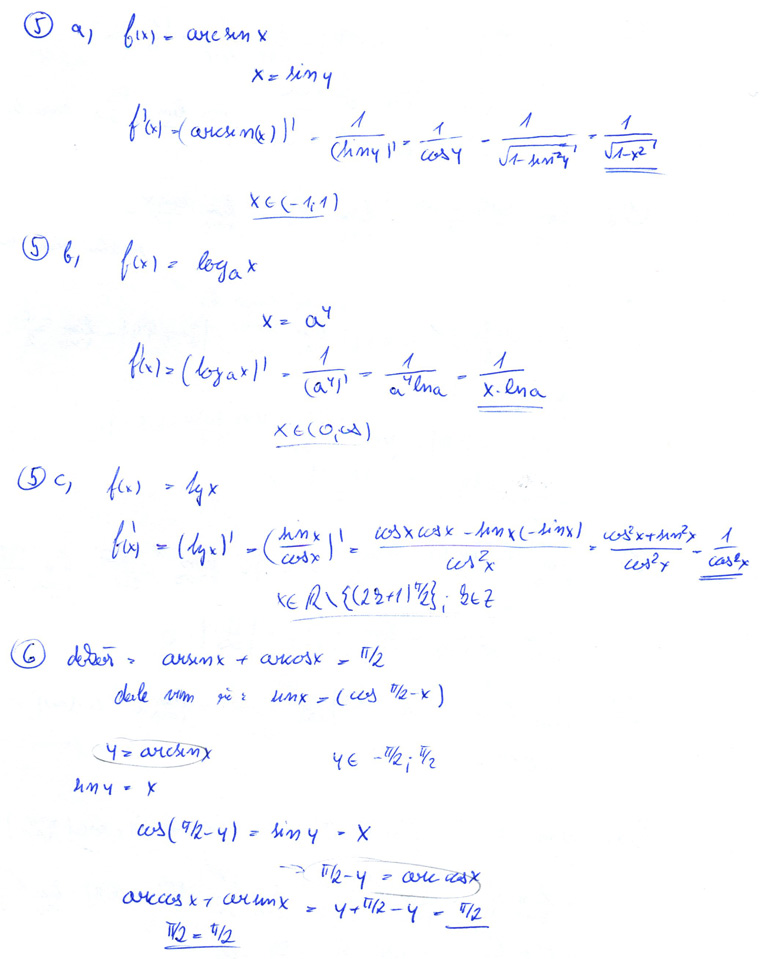 ⑤ a, f(x) = arcsin x
x = sin y
f'(x) = (arcsin(x))' = 1/(sin y)' = 1/cos y = 1/√(1-sin²y) = 1/√(1-x²)
x ∈ (-1; 1)
⑤ b, f(x) = log_a x
x = a^y
f'(x) = (log_a x)' = 1/(a^y)' = 1/(a^y ln a) = 1/(x · ln a)
x ∈ (0, ∞)
⑤ c, f(x) = tg x
f'(x) = (tg x)' = (sin x/cos x)' = (cos x cos x - sin x (-sin x))/cos²x = (cos²x + sin²x)/cos²x = 1/cos²x
x ∈ R \ {(2k+1) π/2}; k ∈ Z
⑥ = arsin x + arcos x = π/2
dále vím že: sin x = (cos π/2 - x)
y = arcsin x y ∈ -π/2; π/2
sin y = x
cos(π/2 - y) = sin y = x
→ π/2 - y = arc cos x
arccos x + arsin x = y + π/2 - y = π/2
π/2 = π/2